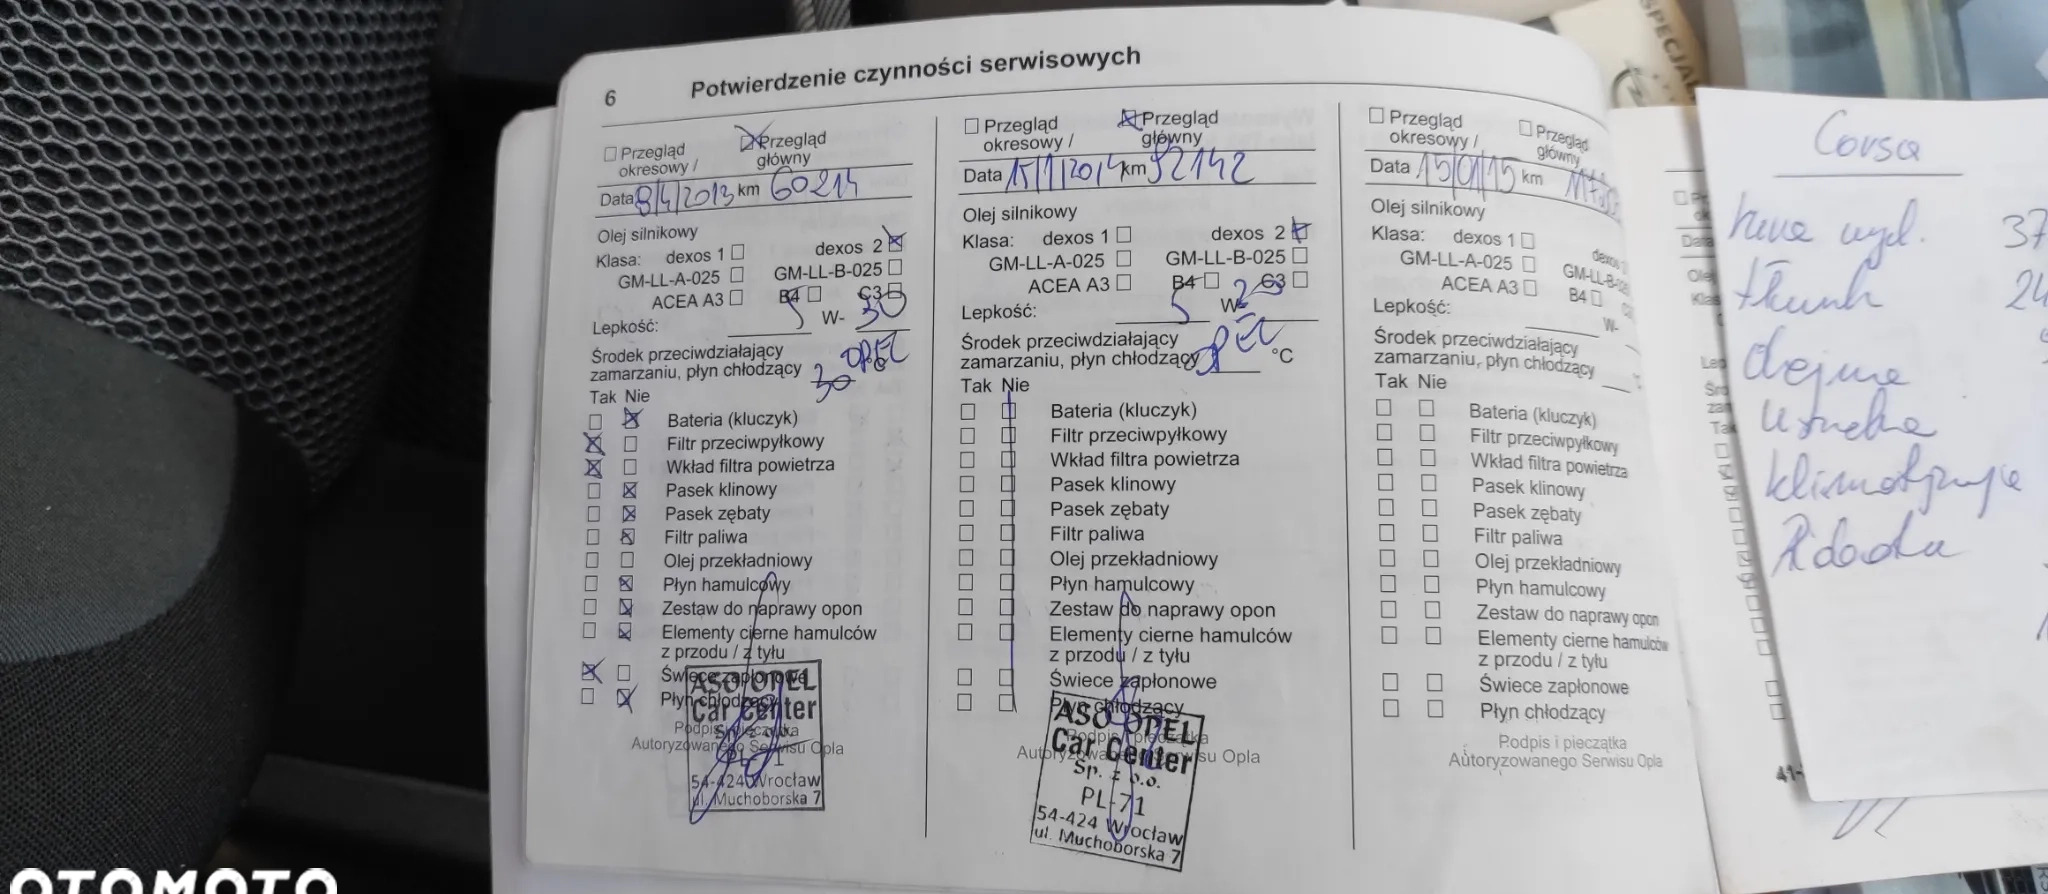 6 Potwierdzenie czynności serwisowych
Przegląd okresowy / Przegląd główny
Data 8/4/2013 km 60214
Olej silnikowy
Klasa: dexos 1 dexos 2
GM-LL-A-025 GM-LL-B-025
ACEA A3 B4 C3
Lepkość: 5 W- 30
Środek przeciwdziałający OPEL
zamarzaniu, płyn chłodzący 30 °C
Tak Nie
Bateria (kluczyk)
Filtr przeciwpyłkowy
Wkład filtra powietrza
Pasek klinowy
Pasek zębaty
Filtr paliwa
Olej przekładniowy
Płyn hamulcowy
Zestaw do naprawy opon
Elementy cierne hamulców
z przodu / z tyłu
Świece zapłonowe
Płyn chłodzący
Podpis i pieczątka
Autoryzowanego Serwisu Opla
ASO OPEL
Car Center
Sp. z o.o.
54-424 Wrocław
ul. Muchoborska 7
Przegląd okresowy / Przegląd główny
Data 15/1/2014 km 92142
Olej silnikowy
Klasa: dexos 1 dexos 2
GM-LL-A-025 GM-LL-B-025
ACEA A3 B4 C3
Lepkość: 5 W-
Środek przeciwdziałający
zamarzaniu, płyn chłodzący OPEL °C
Tak Nie
Bateria (kluczyk)
Filtr przeciwpyłkowy
Wkład filtra powietrza
Pasek klinowy
Pasek zębaty
Filtr paliwa
Olej przekładniowy
Płyn hamulcowy
Zestaw do naprawy opon
Elementy cierne hamulców
z przodu / z tyłu
Świece zapłonowe
Płyn chłodzący
Podpis i pieczątka
Autoryzowanego Serwisu Opla
ASO OPEL
Car Center
Sp. z o.o.
PL-71
54-424 Wrocław
ul. Muchoborska 7
Przegląd okresowy / Przegląd główny
Data 15/01/15 km
Olej silnikowy
Klasa: dexos 1 dexos
GM-LL-A-025 GM-LL-B-025
ACEA A3 B4
Lepkość: W-
Środek przeciwdziałający
zamarzaniu, płyn chłodzący
Tak Nie
Bateria (kluczyk)
Filtr przeciwpyłkowy
Wkład filtra powietrza
Pasek klinowy
Pasek zębaty
Filtr paliwa
Olej przekładniowy
Płyn hamulcowy
Zestaw do naprawy opon
Elementy cierne hamulców
z przodu / z tyłu
Świece zapłonowe
Płyn chłodzący
Podpis i pieczątka
Autoryzowanego Serwisu Opla
Corsa
37
tłumik 24
OTOMOTO